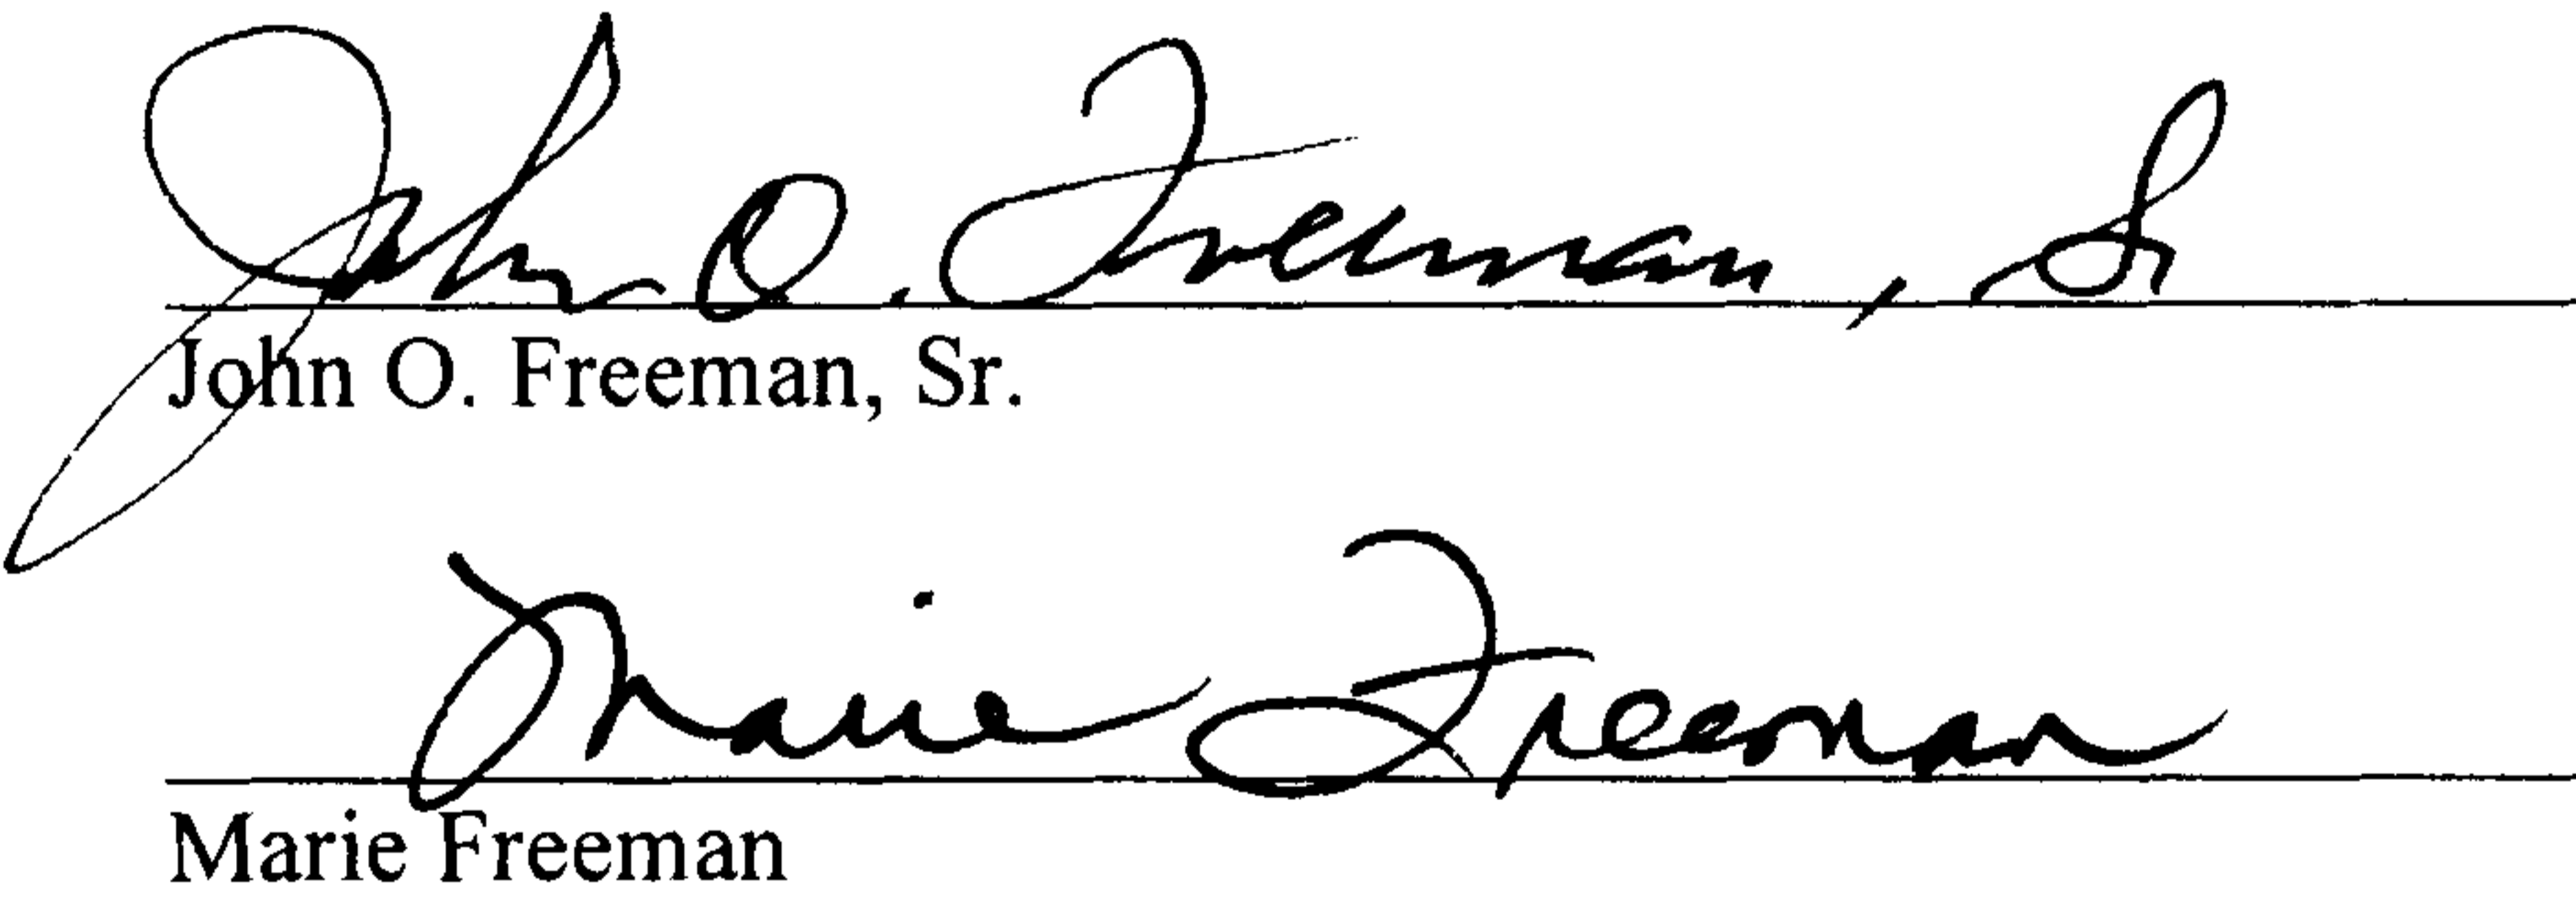 John O. Freeman, Sr
John O. Freeman, Sr.
Marie Freeman
Marie Freeman